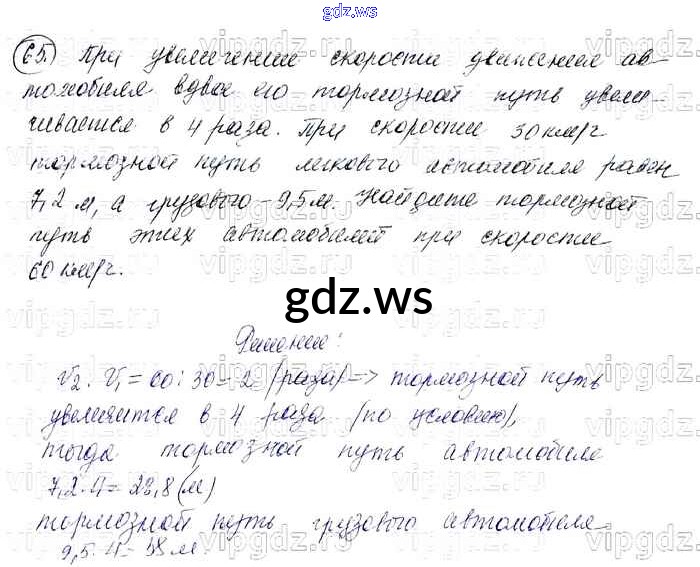 gdz.ws
65. При увеличении скорости движения ав-
томобиля вдвое его тормозной путь увели-
чивается в 4 раза. При скорости 30 км/ч
тормозной путь легкового автомобиля равен
7,2 м, а грузового - 9,5 м. Найдите тормозной
путь этих автомобилей при скорости
60 км/ч.
gdz.ws
Решение:
V2 : V1 = 60 : 30 = 2 (раза) => тормозной путь
увеличится в 4 раза (по условию),
тогда тормозной путь автомобиля
7,2 · 4 = 28,8 (м)
тормозной путь грузового автомобиля
9,5 · 4 = 38 м.
gdz.ws